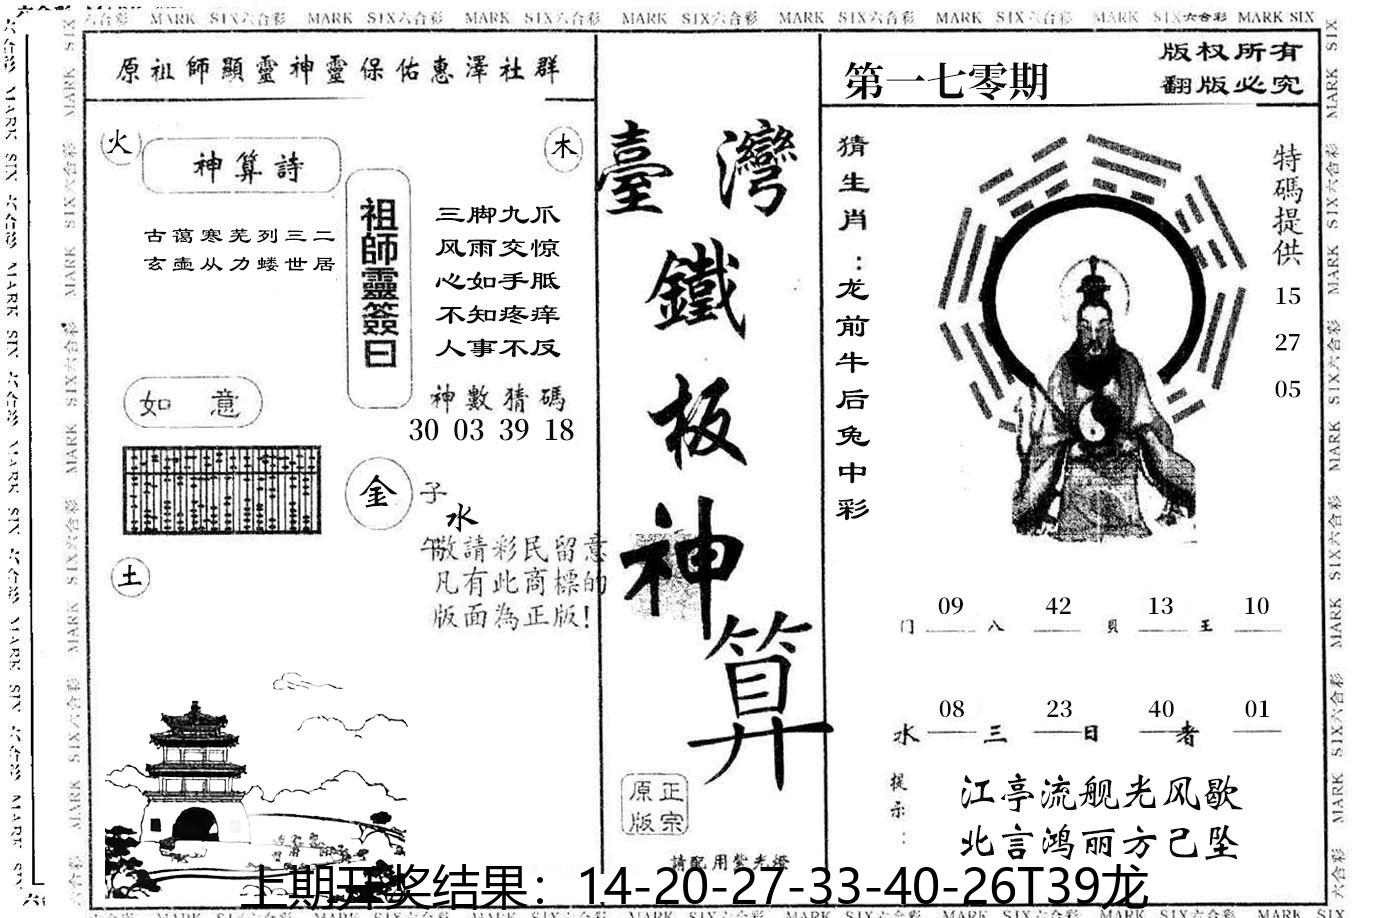 MARK SIX六合彩 MARK SIX六合彩 MARK SIX六合彩 MARK SIX六合彩 MARK SIX六合彩 MARK SIX六合彩 MARK SIX六合彩 MARK SIX
原祖師顯靈神靈保佑惠澤社群
火
木
神算詩
古蔼寒芜列三二
玄壶从力蝼世居
祖師靈簽曰
三脚九爪
风雨交惊
心如手胝
不知疼痒
人事不反
神數猜碼
30 03 39 18
如意
金
子
水
午
土
敬請彩民留意
凡有此商標的
版面為正版!
臺灣
鐵
板
神
算
原正
版宗
請配用紫光燈
第一七零期
版权所有
翻版必究
猜生肖:龙前牛后兔中彩
特碼提供
15
27
05
09 42 13 10
门 八 貝 王
08 23 40 01
水 三 日 者
提示:
江亭流舰光风歇
北言鸿丽方己坠
上期开奖结果：14-20-27-33-40-26T39龙